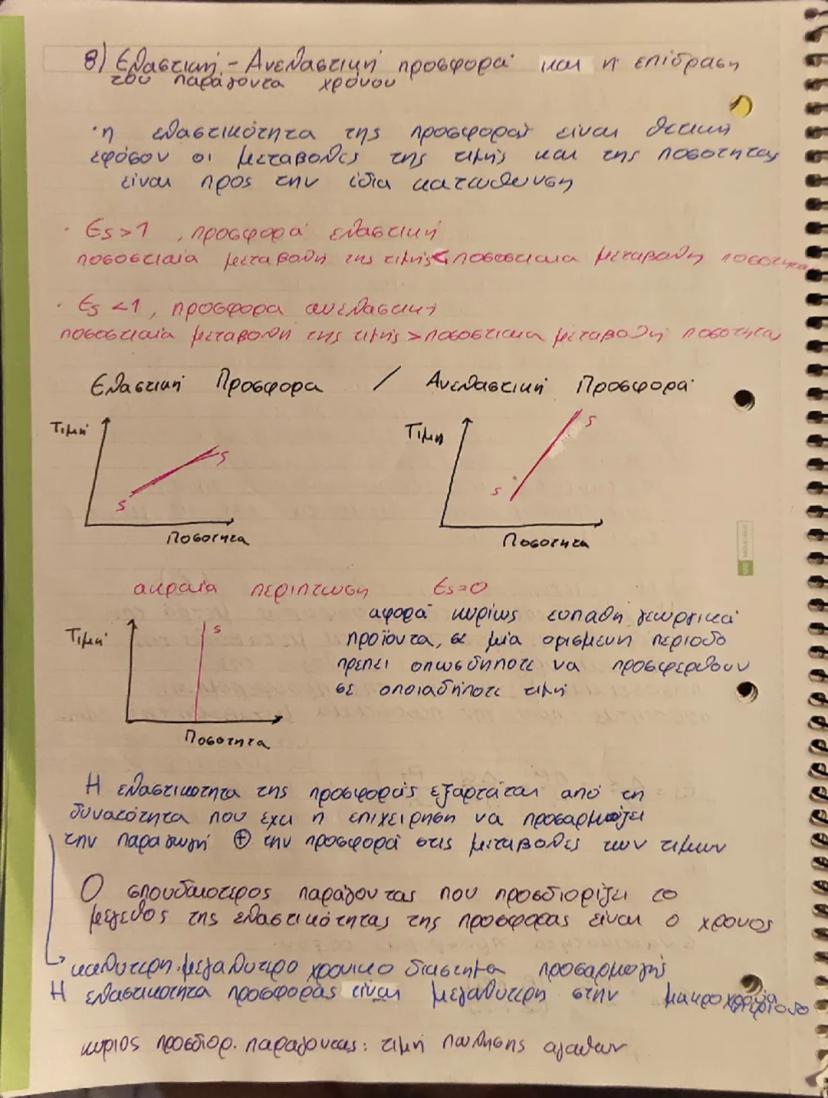 8) Ελαστική - Ανελαστική προσφορά και η επίδραση
του παράγοντα χρόνου
· η ελαστικότητα της προσφοράς είναι θετική
εφόσον οι μεταβολές της τιμής και της ποσότητας
είναι προς την ίδια κατεύθυνση
· Es>1 , προσφορά ελαστική
ποσοστιαία μεταβολή της τιμής < ποσοστιαία μεταβολή ποσότητα
· Es<1, προσφορα ανελαστική
ποσοστιαία μεταβολή της τιμής > ποσοστιαια μεταβολή ποσότητας
Ελαστική Προσφορα / Ανελαστική Προσφορα
Τιμή
S
S
Ποσοτητα
Τιμη
S
S
Ποσοτητα
ακραία περίπτωση Es=0
αφορά κυρίως ευπαθή γεωργικά
προϊοντα, σε μία ορισμενη περιοδο
πρεπει οπωσδηποτε να προσφερθουν
σε οποιαδήποτε τιμή
Τιμή
S
Ποσοτητα
Η ελαστικοτητα της προσφοράς εξαρτάται από τη
δυνατότητα που έχει η επιχείρηση να προσαρμόζει
την παραγωγή ⊕ την προσφορά στις μεταβολες των τιμων
Ο σπουδαιοτερος παράγοντας που προσδιορίζει το
μέγεθος της ελαστικότητας της προσφορας είναι ο χρονος
καλυτερη·μεγαλυτερο χρονικο διαστημα προσαρμογής
Η ελαστικοτητα προσφοράς είναι μεγαλυτερη στην μακροχρονια περίοδο
κυριος προσδιορ. παραγοντας: τιμή πώλησης αγαθων